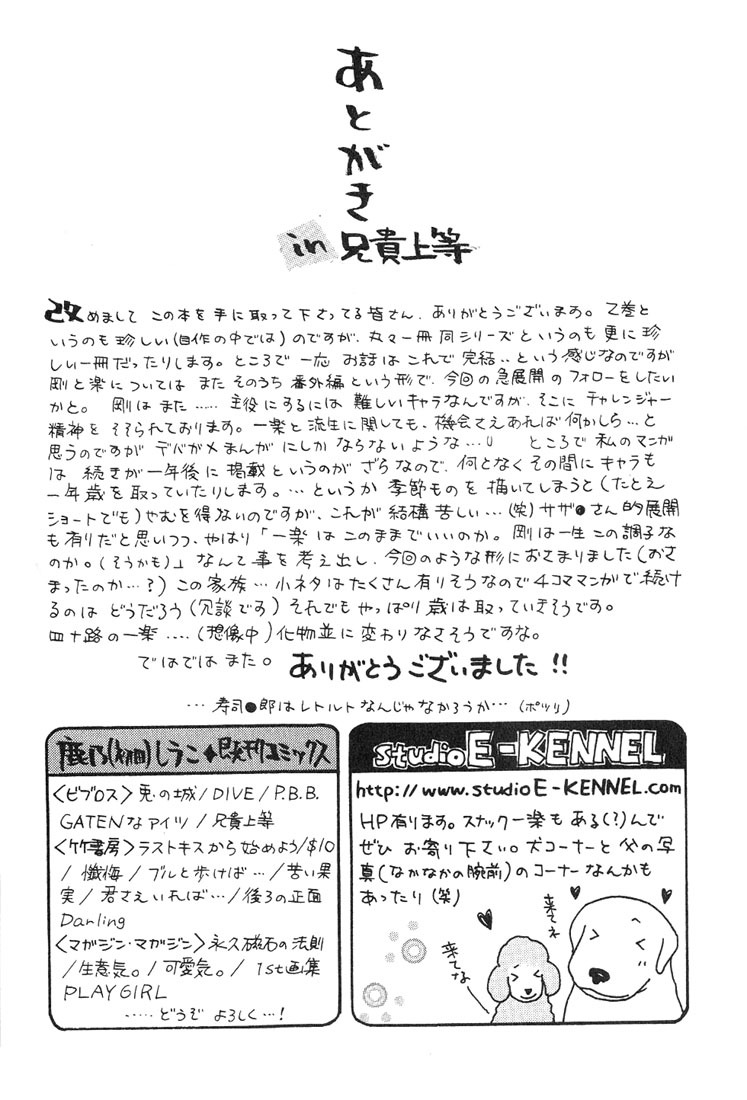 あとがき
in 兄貴上等
改めまして この本を手に取って下さってる皆さん、ありがとうございます。2巻と
いうのも珍しい(自作の中では)のですが、丸々一冊同シリーズというのも更に珍
しい一冊だったりします。ところで一応 お話は これで完結‥という感じなのですが
剛と楽については またそのうち 番外編という形で、今回の急展開の フォローをしたい
かと。 剛は また‥‥‥ 主役にするには 難しいキャラなんですが、そこに チャレンジャー
精神を そそられております。一楽と流生に関しても、機会さえあれば何かしら…と
思うのですが デバガメまんがにしか ならないような…。 ところで私のマンガ
は 続きが一年後に掲載というのが ざらなので、何となくその間にキャラも
一年歳を取っていたりします。…というか 季節ものを描いてしまうと(たとえ
ショートでも)やむを得ないのですが、これが結構苦しい…(笑)サザ●さん的展開
も有りだと思いつつ、やはり「一楽 はこのままでいいのか。剛は一生この調子な
のか。(そうかも)」なんて事を考え出し、今回のような形におさまりました(おさ
まったのか…?)この家族… 小ネタはたくさん有りそうなので4コママンガで続け
るのは どうだろう(冗談です)それでもやっぱり歳は取っていきそうです。
四十路の一楽‥‥(想像中)化物並に変わりなさそうですな。
ではでは また。 ありがとうございました!!
…寿司●郎はレトルトなんじゃなかろうか…(ポツリ)
鹿乃(初田)しうこ◆既刊コミックス
〈ビブロス〉兎の城/DIVE/P.B.B.
GATENなアイツ/兄貴上等
〈竹書房〉ラストキスから始めよう/$10
/懺悔/ブルと歩けば…/苦い果
実/君さえいれば…/後ろの正面
Darling
〈マガジン・マガジン〉永久磁石の法則
/生意気。/可愛気。/1st画集
PLAY GIRL
‥‥‥どうぞ よろしく…!
studio E-KENNEL
http://www.studioE-KENNEL.com
HP有ります。スナック一楽も ある(?)んで
ぜひ お寄り下さい。犬コーナーと父の写
真(なかなかの腕前)のコーナーなんかも
あったり(笑)
来てえ
来てな